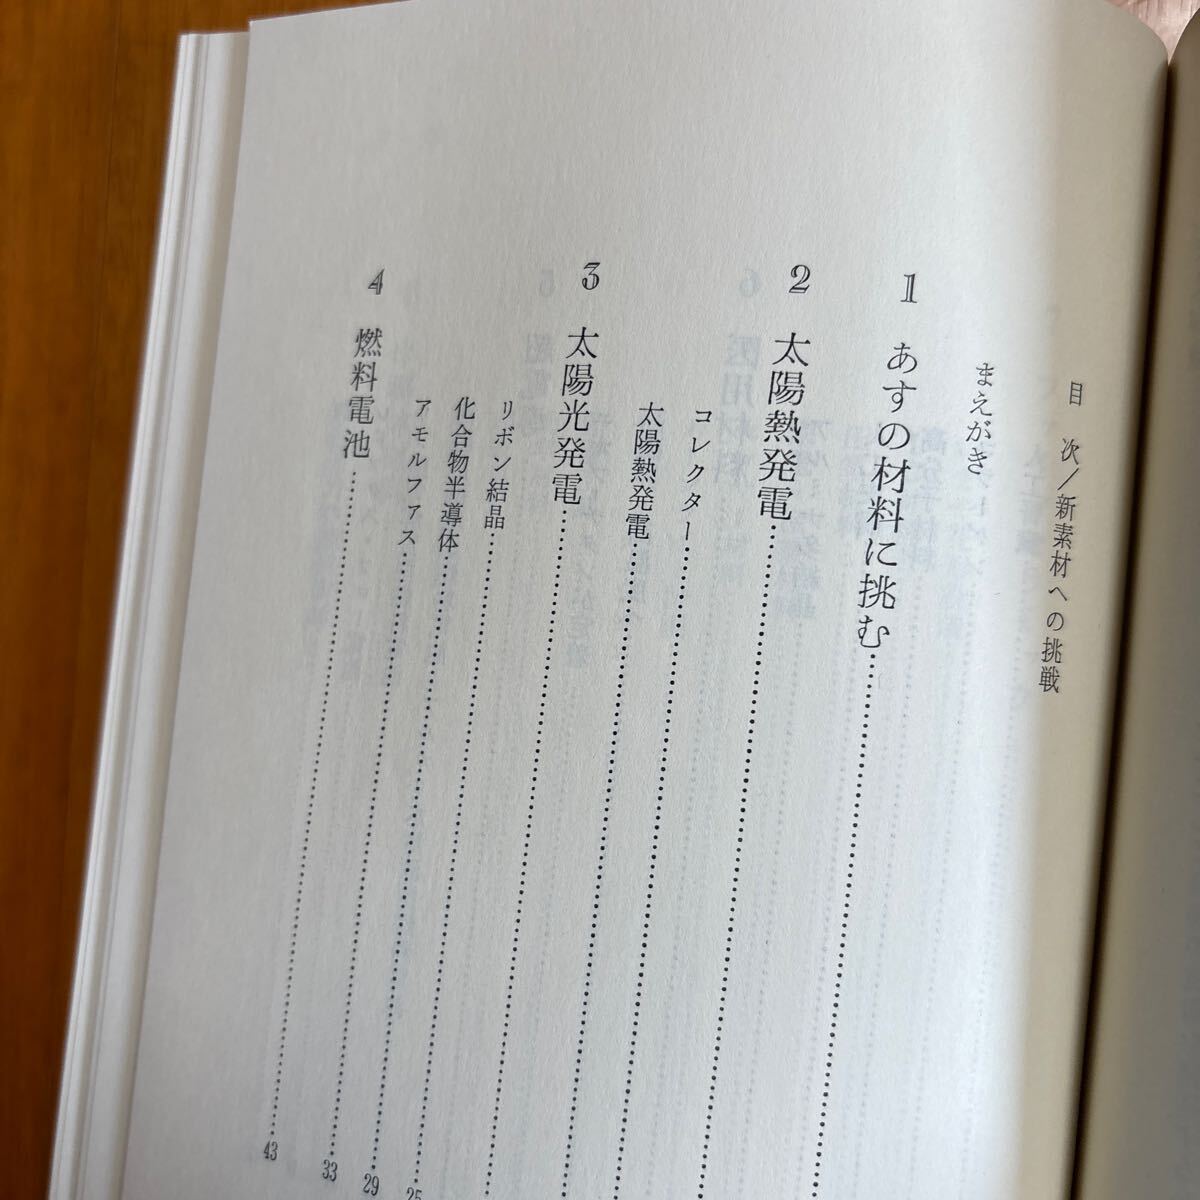 目 次／新素材への挑戦
まえがき
1 あすの材料に挑む
2 太陽熱発電
コレクター
太陽熱発電
3 太陽光発電
リボン結晶
化合物半導体 25
アモルファス 29
4 燃料電池 33
43